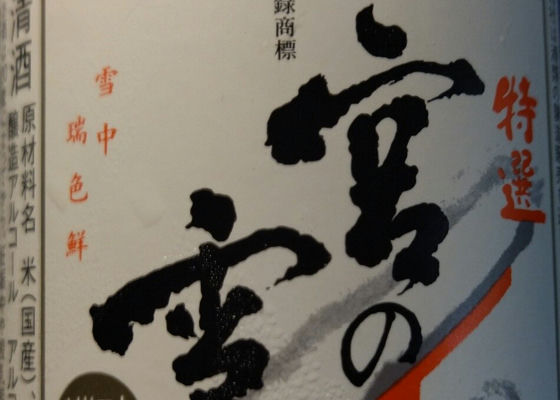 録商標
特選
宮の
雪
雪中
瑞色鮮
清酒
原材料名 米(国産)、
醸造アルコール アル